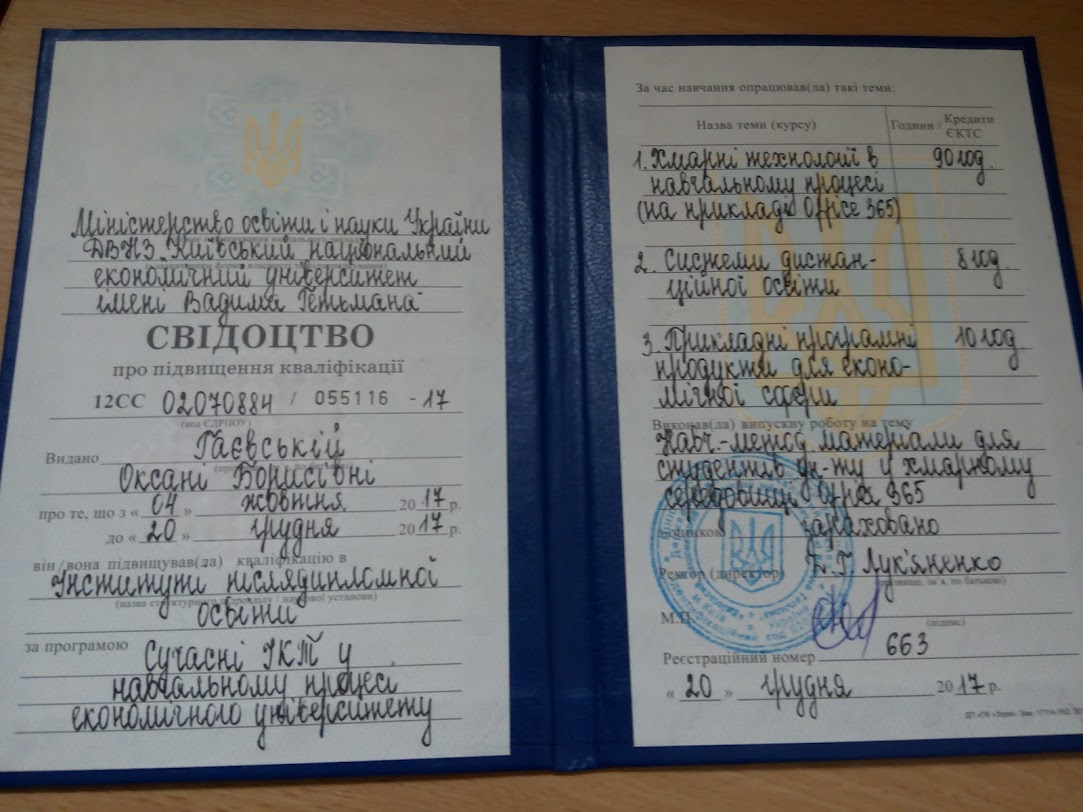 Міністерство освіти і науки України
ДВНЗ „Київський національний
економічний університет
імені Вадима Гетьмана"
СВІДОЦТВО
про підвищення кваліфікації
12СС 02070884 / 055116 - 17
(код ЄДРПОУ)
Видано Гаєвській
Оксані Борисівні
про те, що з « 04 » жовтня 2017 р.
до « 20 » грудня 2017 р.
він/вона підвищував(ла) кваліфікацію в
Інституті післядипломної
(назва структурного підрозділу / наукової установи)
освіти
за програмою Сучасні ІКТ у
навчальному процесі
економічного університету
За час навчання опрацював(ла) такі теми:
Назва теми (курсу) Години / Кредити ЄКТС
1. Хмарні технології в 90 год.
навчальному процесі
(на прикладі Office 365)
2. Системи дистан- 8 год.
ційної освіти
3. Прикладні програмні 10 год.
продукти для еконо-
мічної сфери
Виконав(ла) випускну роботу на тему
Навч.-метод. матеріали для
студентів у хмарному
середовищі Office 365
з оцінкою зараховано
Ректор (директор) Лук'яненко
(прізвище, ім'я, по батькові)
М.П.
(підпис)
Реєстраційний номер 663
« 20 » грудня 2017 р.